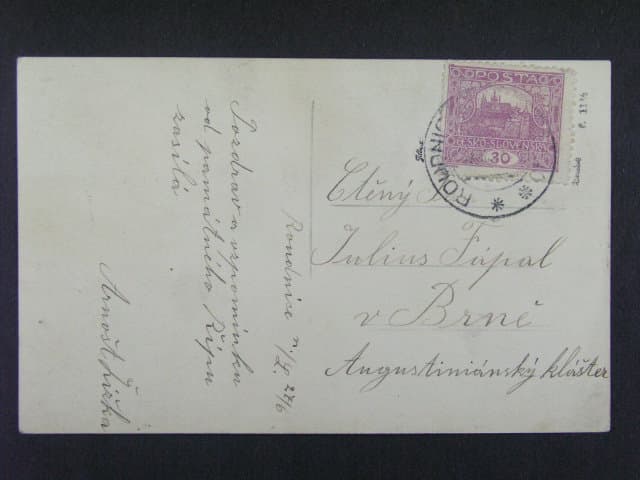 POSTA
ČESKO-SLOVENSKÁ
30
ROUDNIC
Pozdrav a vzpomínku
od památného Řípu
zasílá
Arnošt
Roudnice n/L. 27/6
Ctěný
Julius
v Brně
Augustiniánský klášter